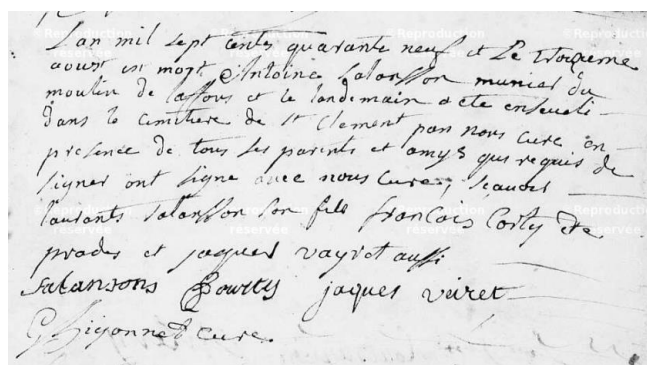 L'an mil sept cents quarante neuf et le
aoust est mort Antoine salansson munier du
moulin de et le landemain a ete enseveli
dans le cimitiere de st Clement par nous Cure en
presence de tous ses parents et amys qui requis de
signer ont signe avec nous Cure, scavoir
laurants salansson son fils francois Corty de
prades et jaques vayret aussi
salansons Courtys jaques viret
G higonnet cure.
© Reproduction réservée